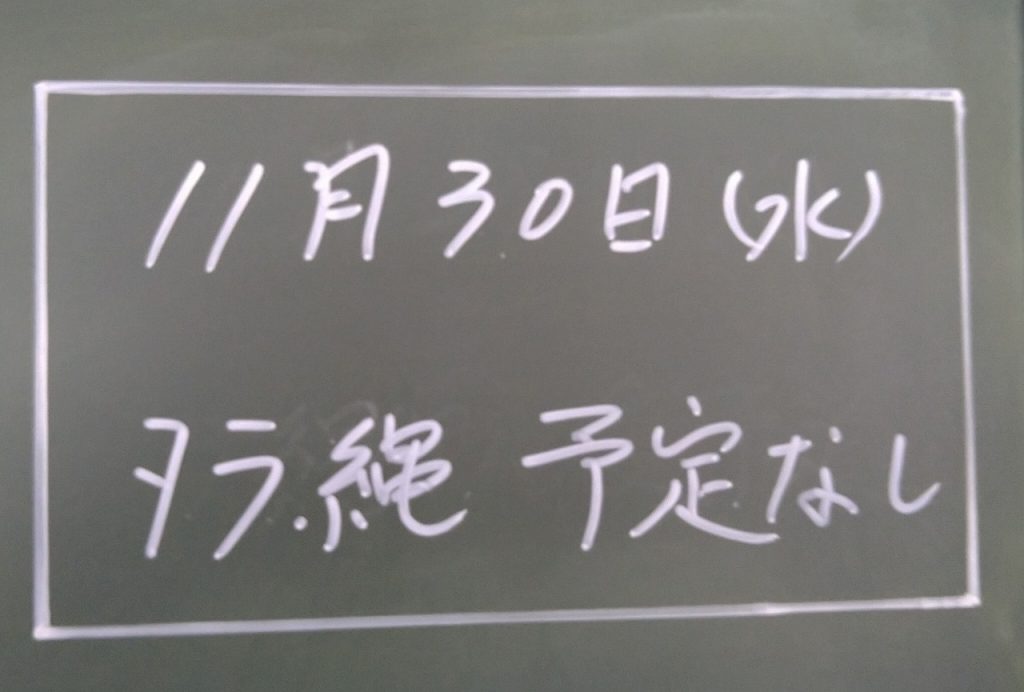 11月30日(水)
タラ縄 予定なし